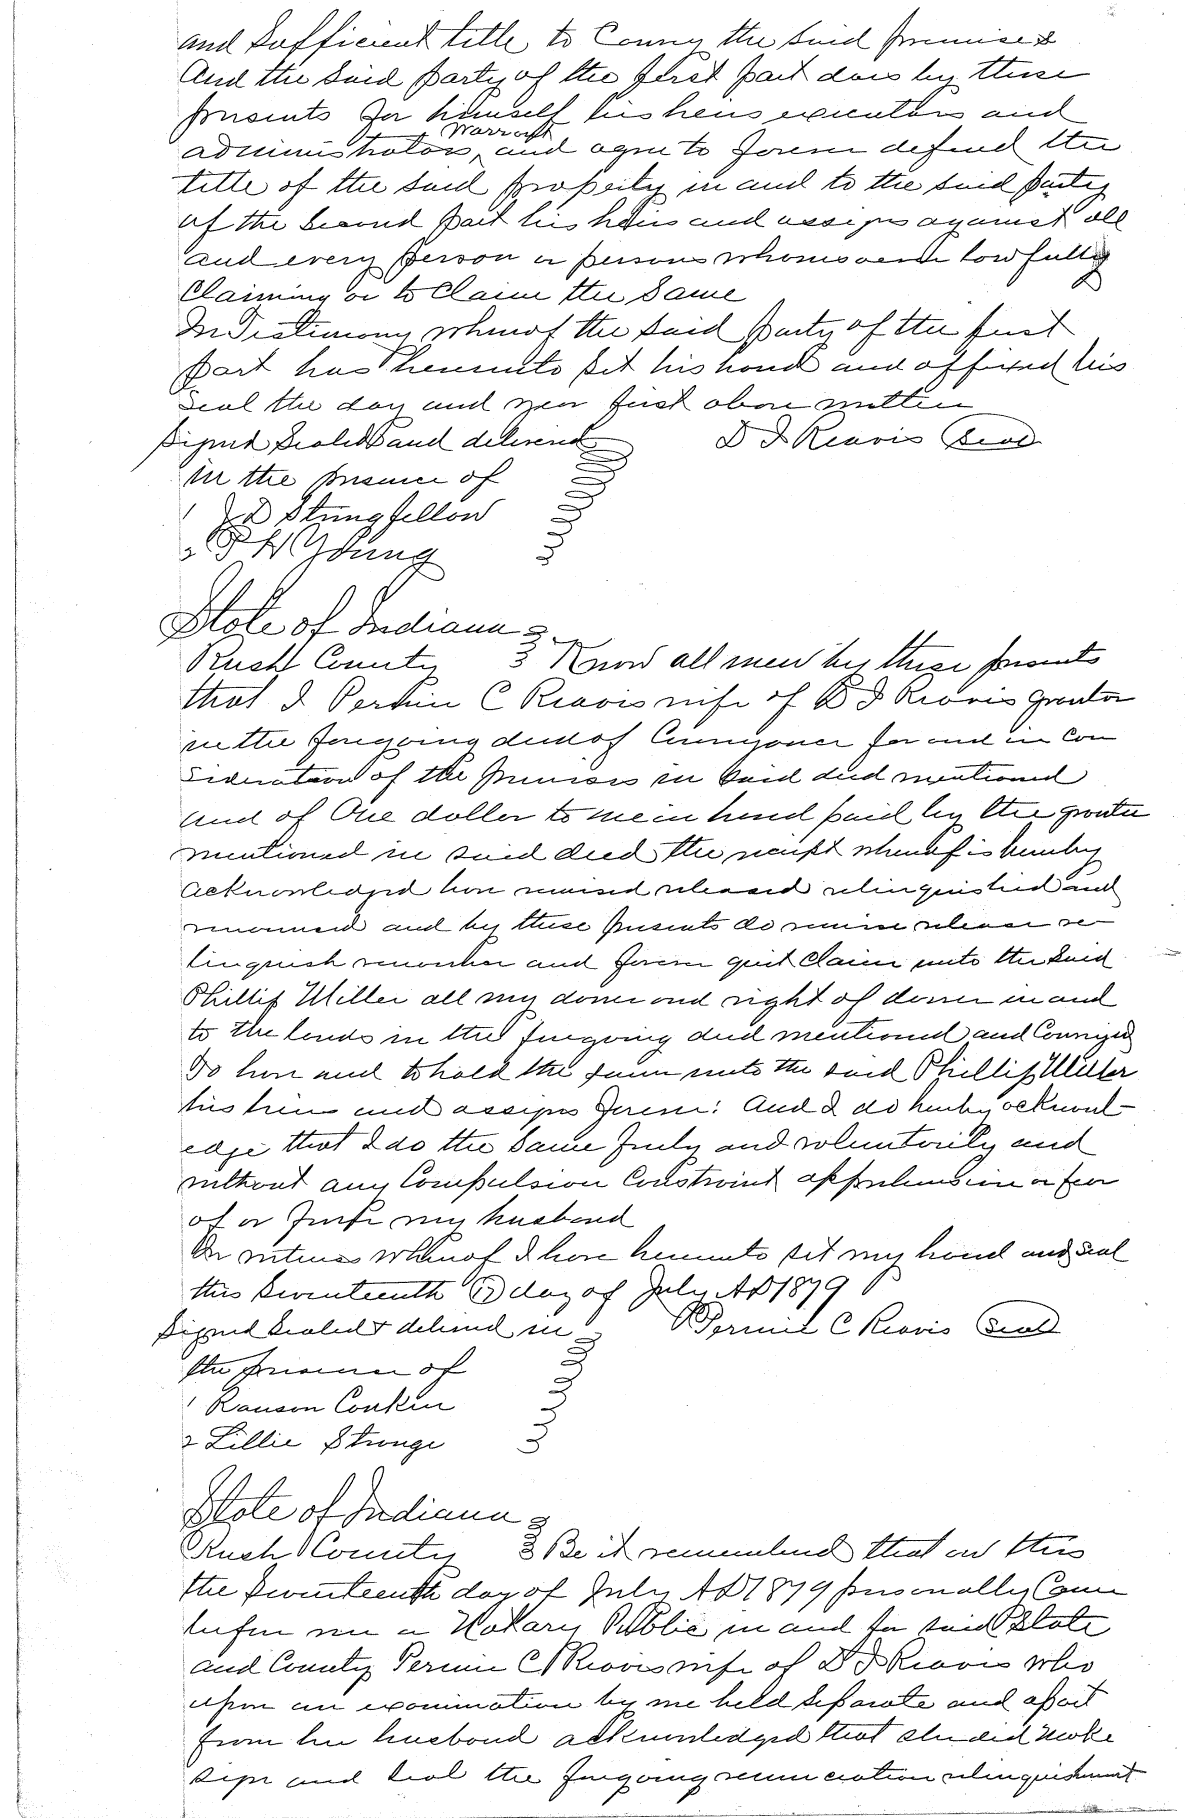 and Sufficient title to Convey the Said premises
And the Said party of the first part does by these
presents for himself his heirs executors and
administrators, Warrant and agree to forever defend the
title of the said property in and to the said party
of the Second part his heirs and assigns against all
and every person or persons whomsoever lowfully
Claiming or to Claim the Same
In Testimony whereof the said party of the first
part has hereunto set his hand and affixed his
Seal the day and year first above written
Signed Sealed and delivered D J Reavis Seal
in the presence of
1 J D Stringfellow
2 P H Young
State of Indiana
Rush County Know all men by these presents
that I C Reavis wife of D J Reavis grantor
in the foregoing deed of Conveyance for and in Con
sideration of the premises in said deed mentioned
and of One dollar to me in hand paid by the grantee
mentioned in said deed the receipt whereof is hereby
acknowledged have remised released relinquished and
renounced and by these presents do remise release re
linquish renounce and forever quit Claim unto the Said
Phillip Miller all my dower and right of dower in and
to the lands in the foregoing deed mentioned and Conveyed
To have and to hold the same unto the said Phillip Miller
his heirs and assigns forever: And I do hereby acknowl-
edge that I do the Same freely and voluntarily and
without any Compulsion Constraint apprehension or fear
of or from my husband
In witness Whereof I have hereunto set my hand and seal
this Seventeenth (17) day of July AD 1879
Signed Sealed & delivered in Permie C Reavis Seal
the presence of
1 Ranson Conkin
2 Lillie Stronge
State of Indiana
Rush County Be it remembered that on this
the Seventeenth day of July AD 1879 personally Came
before me a Notary Public in and for said State
and County Permie C Reavis wife of D J Reavis who
upon an examination by me held Separate and apart
from her husband acknowledged that she did make
sign and seal the foregoing renunciation relinquishment